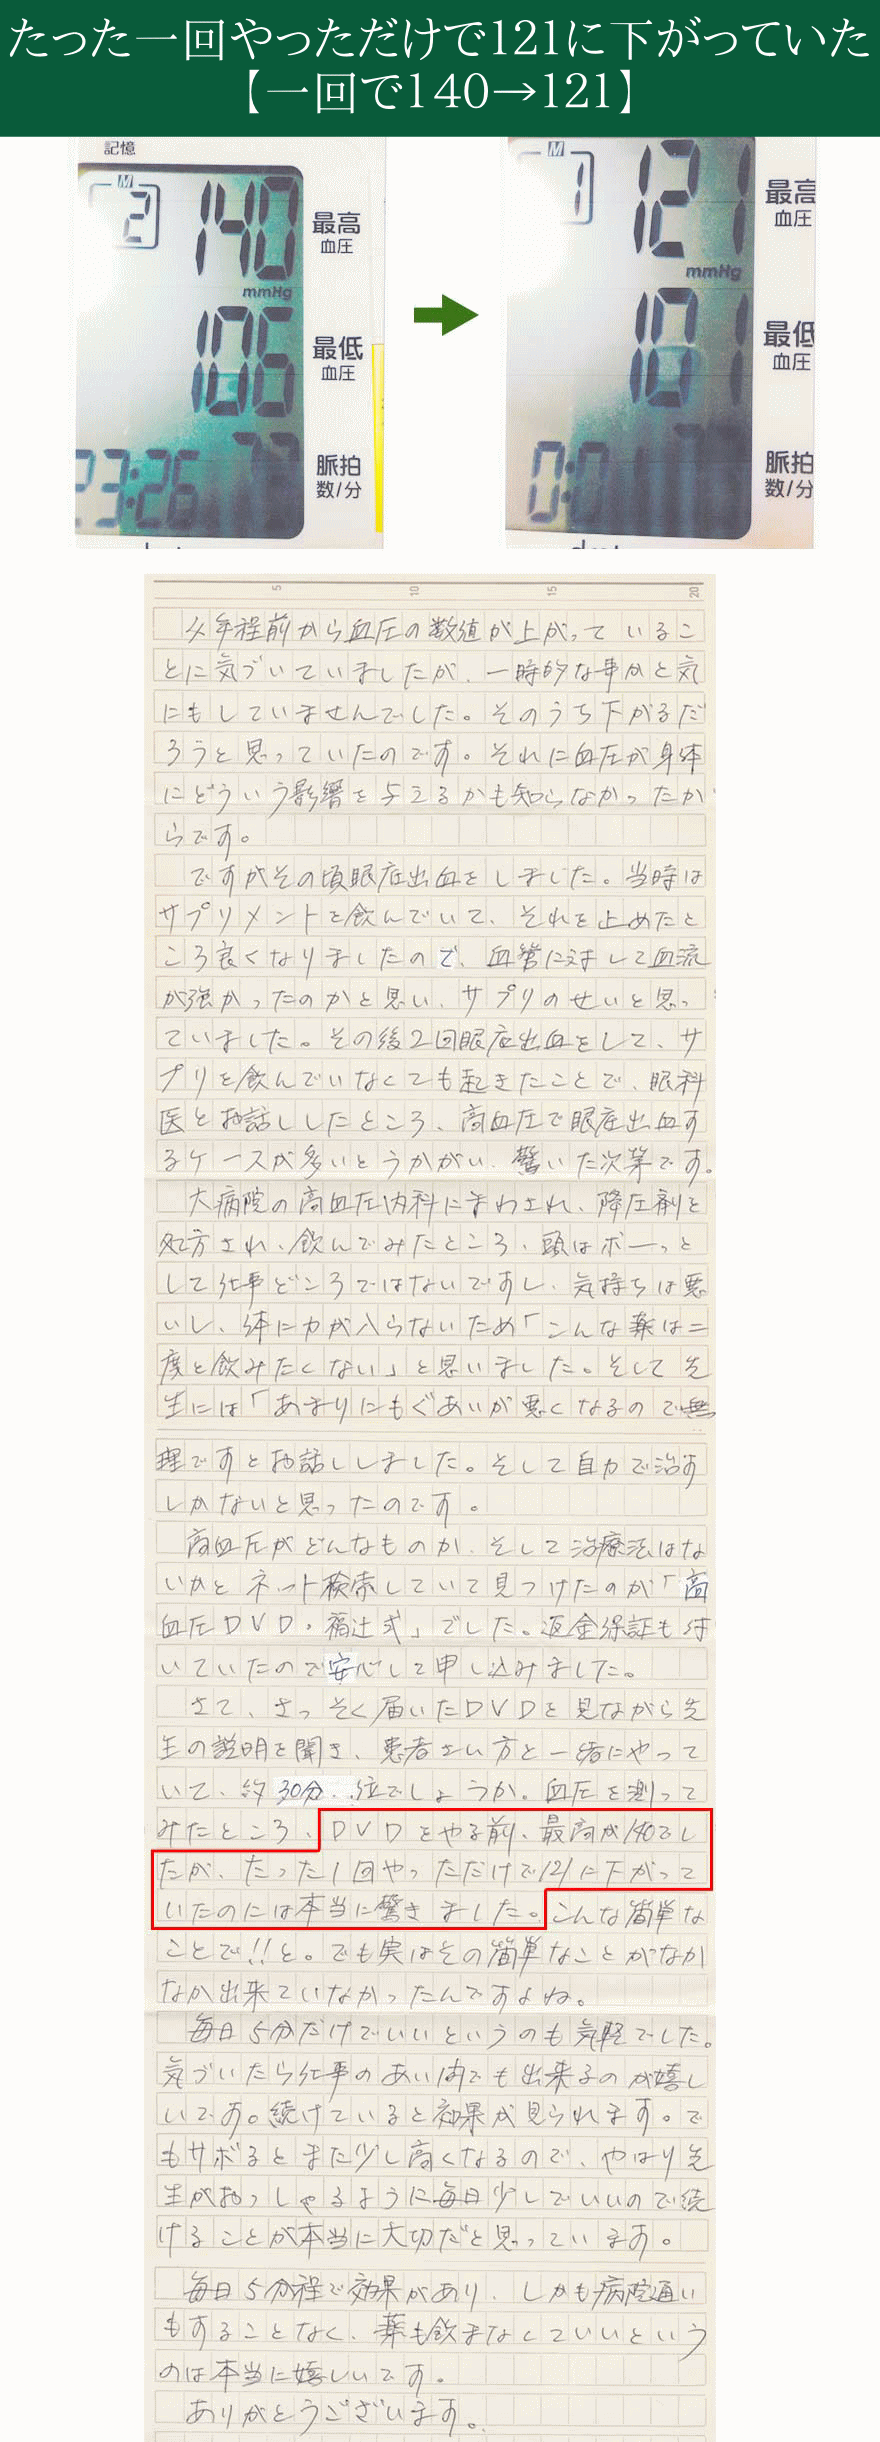 たった一回やっただけで121に下がっていた
【一回で140→121】
記憶
M
2
140
最高
血圧
mmHg
106
最低
血圧
23:26
77
脈拍
数/分
M
1
121
最高
血圧
mmHg
101
最低
血圧
0:01
77
脈拍
数/分
5 10 15 20
4年程前から血圧の数値が上がっているこ
とに気づいていましたが、一時的な事かと気
にもしていませんでした。そのうち下がるだ
ろうと思っていたのです。それに血圧が身体
にどういう影響を与えるかも知らなかったか
らです。
ですがその頃眼底出血をしました。当時は
サプリメントを飲んでいて、それを止めたと
ころ良くなりましたので、血管に対して血流
が強かったのかと思い、サプリのせいと思っ
ていました。その後2回眼底出血をして、サ
プリを飲んでいなくても起きたことで、眼科
医とお話ししたところ、高血圧で眼底出血す
るケースが多いとうかがい、驚いた次第です。
大病院の高血圧内科にまわされ、降圧剤を
処方され、飲んでみたところ、頭はボーっと
して仕事どころではないですし、気持ちは悪
いし、体に力が入らないため「こんな薬は二
度と飲みたくない」と思いました。そして先
生には「あまりにもぐあいが悪くなるので無
理ですとお話ししました。そして自力で治す
しかないと思ったのです。
高血圧がどんなものか、そして治療法はな
いかとネット検索していて見つけたのが「高
血圧DVD・福辻式」でした。返金保証も付
いていたので安心して申し込みました。
さて、さっそく届いたDVDを見ながら先
生の説明を聞き、患者さい方と一緒にやって
いて、約30分、位でしょうか。血圧を測って
みたところ、DVDをやる前、最高が140でし
たが、たった1回やっただけで121に下がって
いたのには本当に驚きました。こんな簡単な
ことで!!と。でも実はその簡単なことがなか
なか出来ていなかったんですよね。
毎日5分だけでいいというのも気軽でした。
気づいたら仕事のあい間でも出来るのが嬉し
いです。続けていると効果が見られます。で
もサボるとまた少し高くなるので、やはり先
生がおっしゃるように毎日少しでいいので続
けることが本当に大切だと思っています。
毎日5分程で効果があり、しかも病院通い
もすることなく、薬も飲まなくていいという
のは本当に嬉しいです。
ありがとうございます。